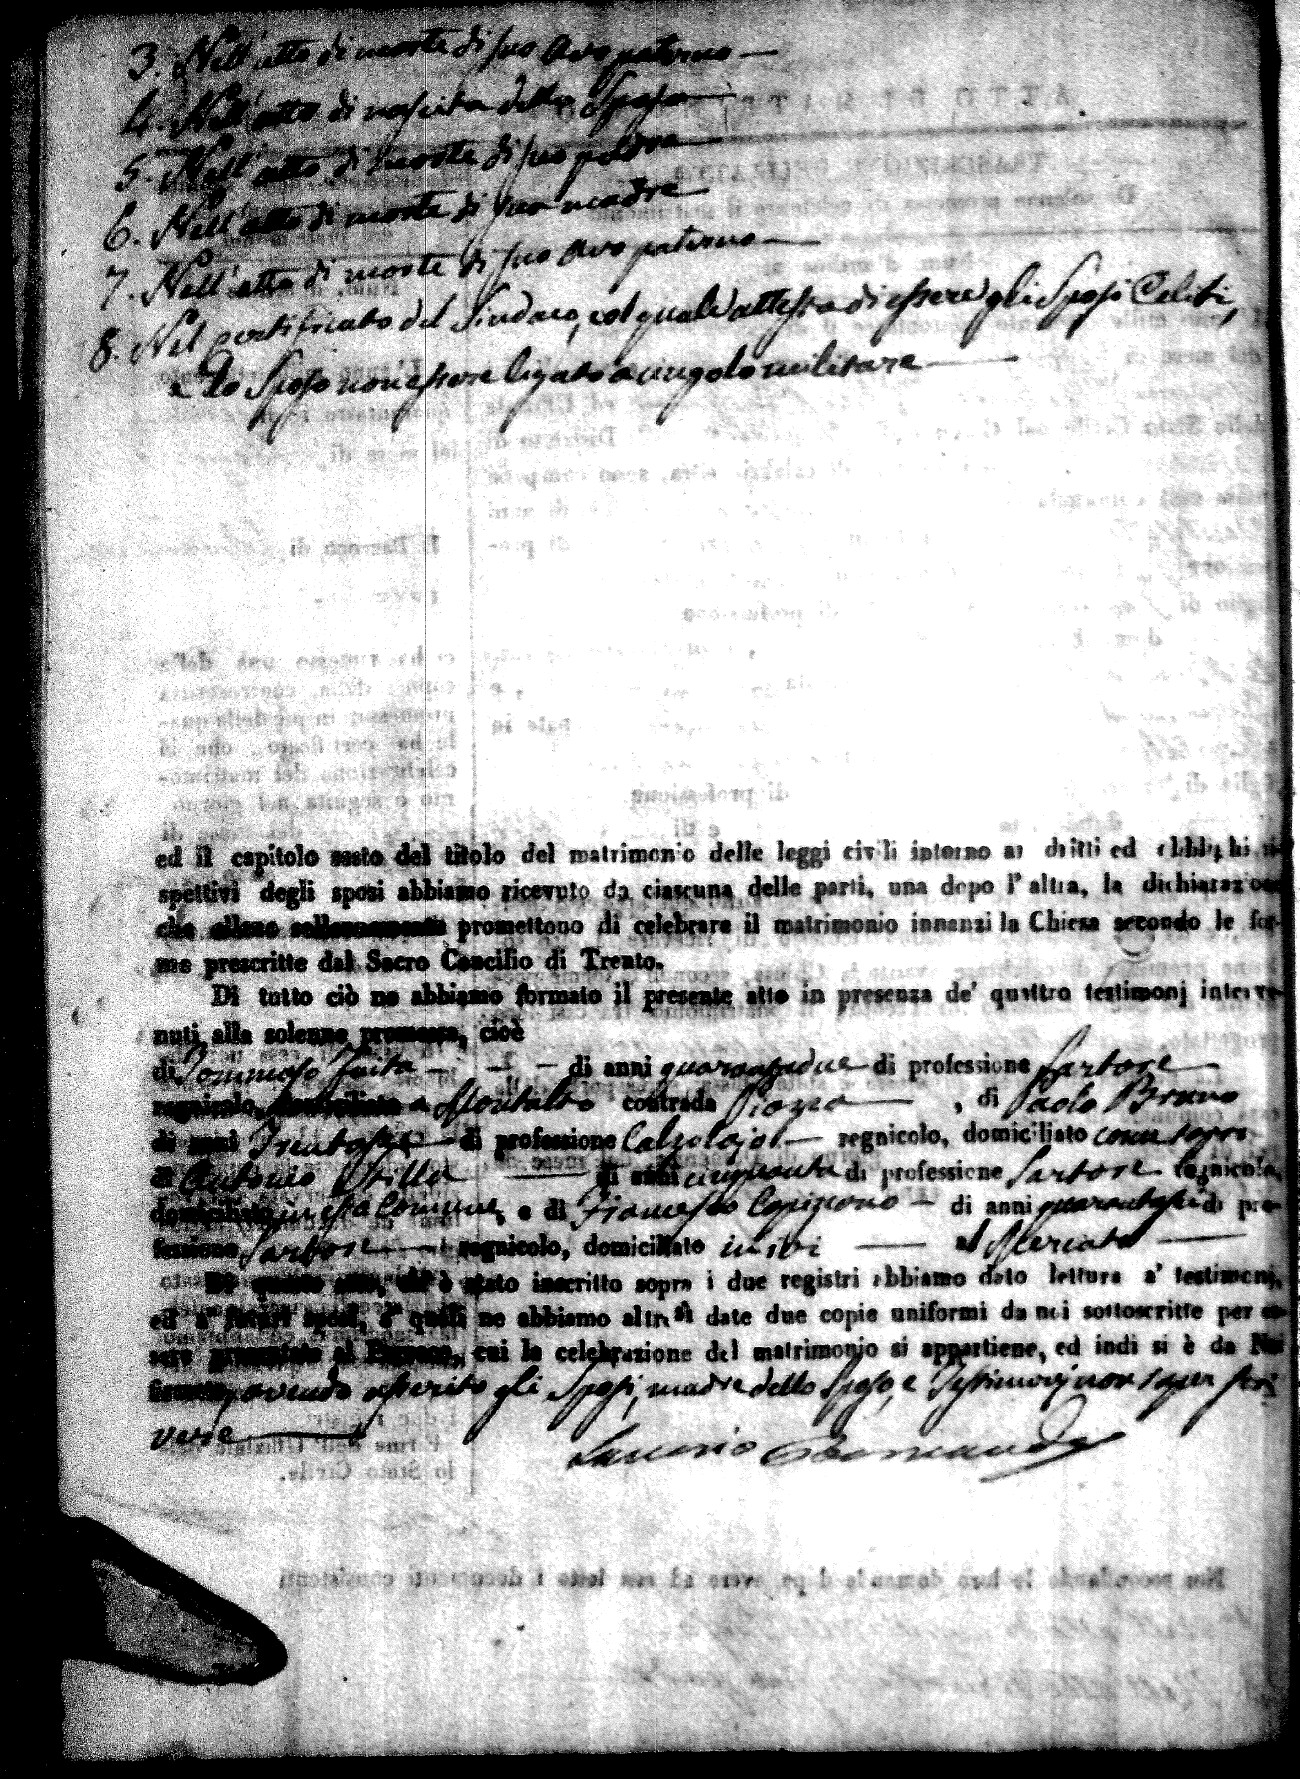 3. Nell'atto di morte di suo Avo paterno —
4. Nell'atto di nascita della Sposa —
5. Nell'atto di morte di suo padre —
6. Nell'atto di morte di sua madre —
7. Nell'atto di morte di suo Avo paterno —
8. Nel certificato del Sindaco, col quale attesta di essere gli Sposi Celibi,
e lo Sposo non essere ligato a vingolo militare —
ed il capitolo sesto del titolo del matrimonio delle leggi civili intorno ai dritti ed obblighi ri-
spettivi degli sposi abbiamo ricevuto da ciascuna delle parti, una dopo l'altra, la dichiarazione
che elleno sollennemente promettono di celebrare il matrimonio innanzi la Chiesa secondo le for-
me prescritte dal Sacro Concilio di Trento.
Di tutto ciò ne abbiamo formato il presente atto in presenza de' quattro testimonj interve-
nuti alla solenne promessa, cioè
di Tommaso — di anni quarantadue di professione Sartore —
regnicolo, domiciliato a Montalto contrada Piazza —, di Paolo Bruno
di anni Trentasei — di professione Calzolajo — regnicolo, domiciliato come sopra
di Antonio — di anni cinquanta di professione Sartore regnicolo,
domiciliato in Comune, e di Francesco — di anni di pro-
fessione Sartore — regnicolo, domiciliato in ivi — al Mercato —
Di questo atto, ch'è stato inscritto sopra i due registri abbiamo dato lettura a' testimonj,
ed a' futuri sposi, a' quali ne abbiamo altresì date due copie uniformi da noi sottoscritte per es-
sere presentate al Parroco, cui la celebrazione del matrimonio si appartiene, ed indi si è da Noi
firmato, avendo asserito gli Sposi, madre dello Sposo, e Testimonj non saper scri
vere —